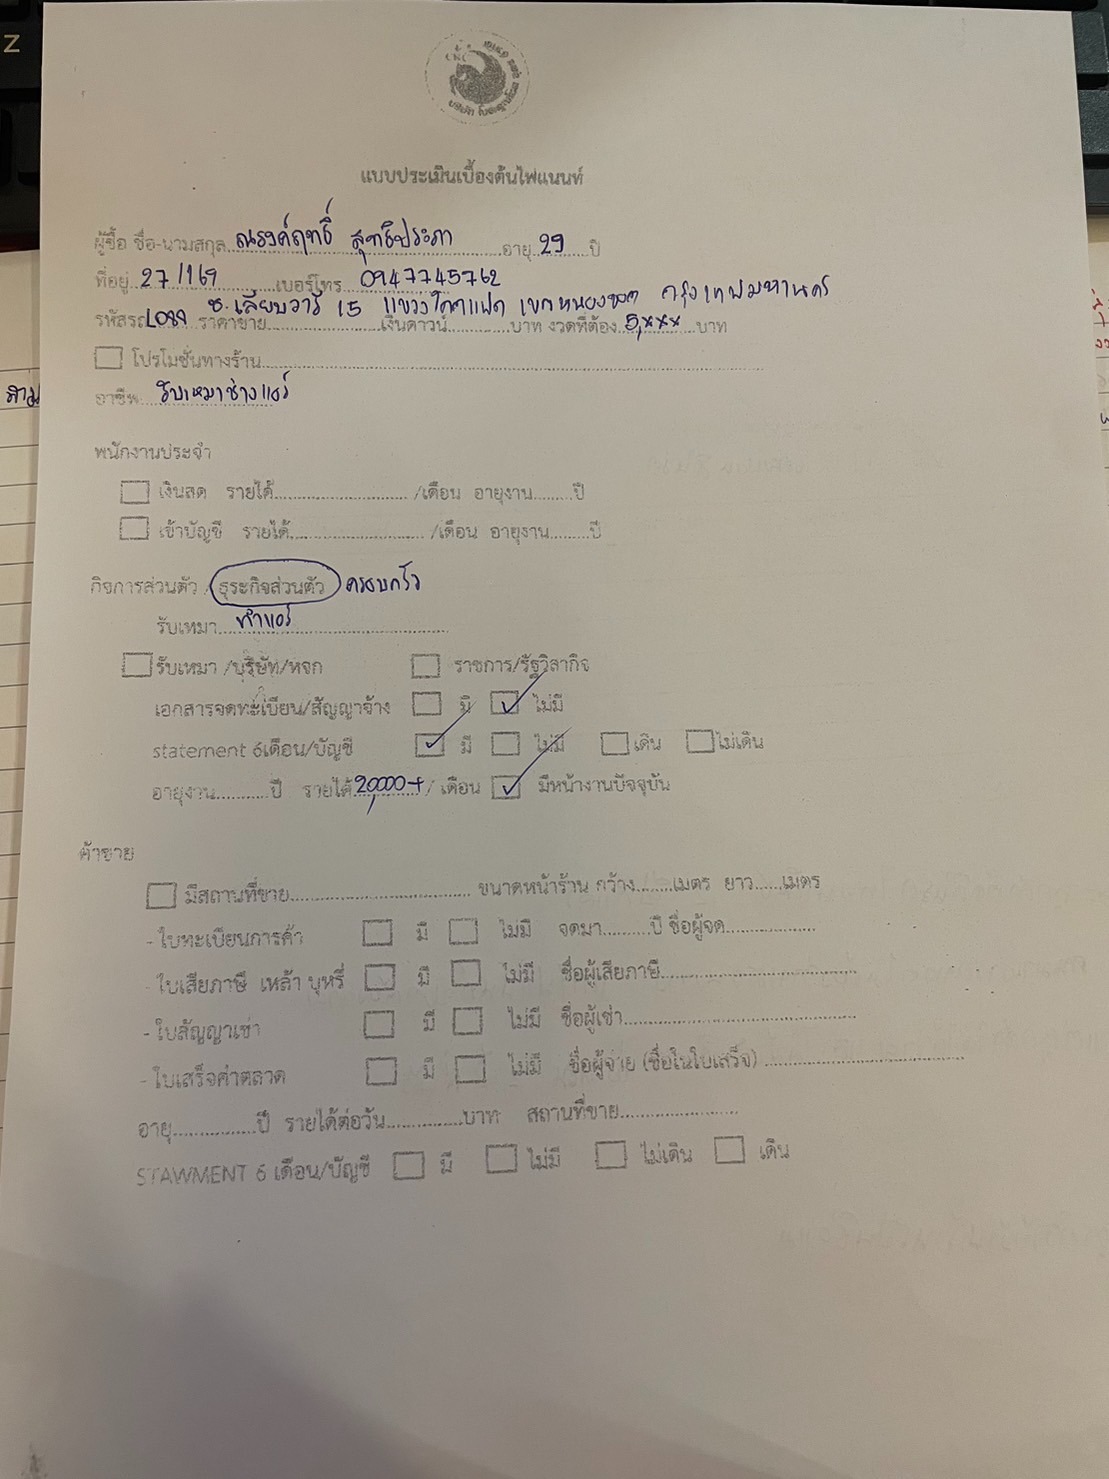 แบบประเมินเบื้องต้นไฟแนนท์
ผู้ซื้อ ชื่อ-นามสกุล ณรงค์ฤทธิ์ สุทธิประภา อายุ 29 ปี
ที่อยู่ 27/169 เบอร์โทร 0947745762
ซ.เลียบวารี 15 แขวงโคกแฝด เขตหนองจอก กรุงเทพมหานคร
รหัสรถ L088 ราคาขาย............เงินดาวน์............บาท งวดที่ต้อง 5,xxx บาท
โปรโมชั่นทางร้าน............
อาชีพ รับเหมาช่างแอร์
พนักงานประจำ
เงินสด รายได้............/เดือน อายุงาน.........ปี
เข้าบัญชี รายได้............/เดือน อายุงาน.........ปี
กิจการส่วนตัว / ธุระกิจส่วนตัว ครอบครัว
รับเหมา ทำแอร์
รับเหมา /บริษัท/หจก ราชการ/รัฐวิสากิจ
เอกสารจดทะเบียน/สัญญาจ้าง มี ✓ ไม่มี
statement 6เดือน/บัญชี ✓ มี ไม่มี เดิน ไม่เดิน
อายุงาน............ปี รายได้ 20,000+ / เดือน ✓ มีหน้างานปัจจุบัน
ค้าขาย
มีสถานที่ขาย............ ขนาดหน้าร้าน กว้าง........เมตร ยาว......เมตร
- ใบทะเบียนการค้า มี ไม่มี จดมา.........ปี ชื่อผู้จด............
- ใบเสียภาษี เหล้า บุหรี่ มี ไม่มี ชื่อผู้เสียภาษี............
- ใบสัญญาเช่า มี ไม่มี ชื่อผู้เช่า............
- ใบเสร็จค่าตลาด มี ไม่มี ชื่อผู้จ่าย (ชื่อในใบเสร็จ) ............
อายุ............ปี รายได้ต่อวัน............บาท สถานที่ขาย............
STAWMENT 6 เดือน/บัญชี มี ไม่มี ไม่เดิน เดิน